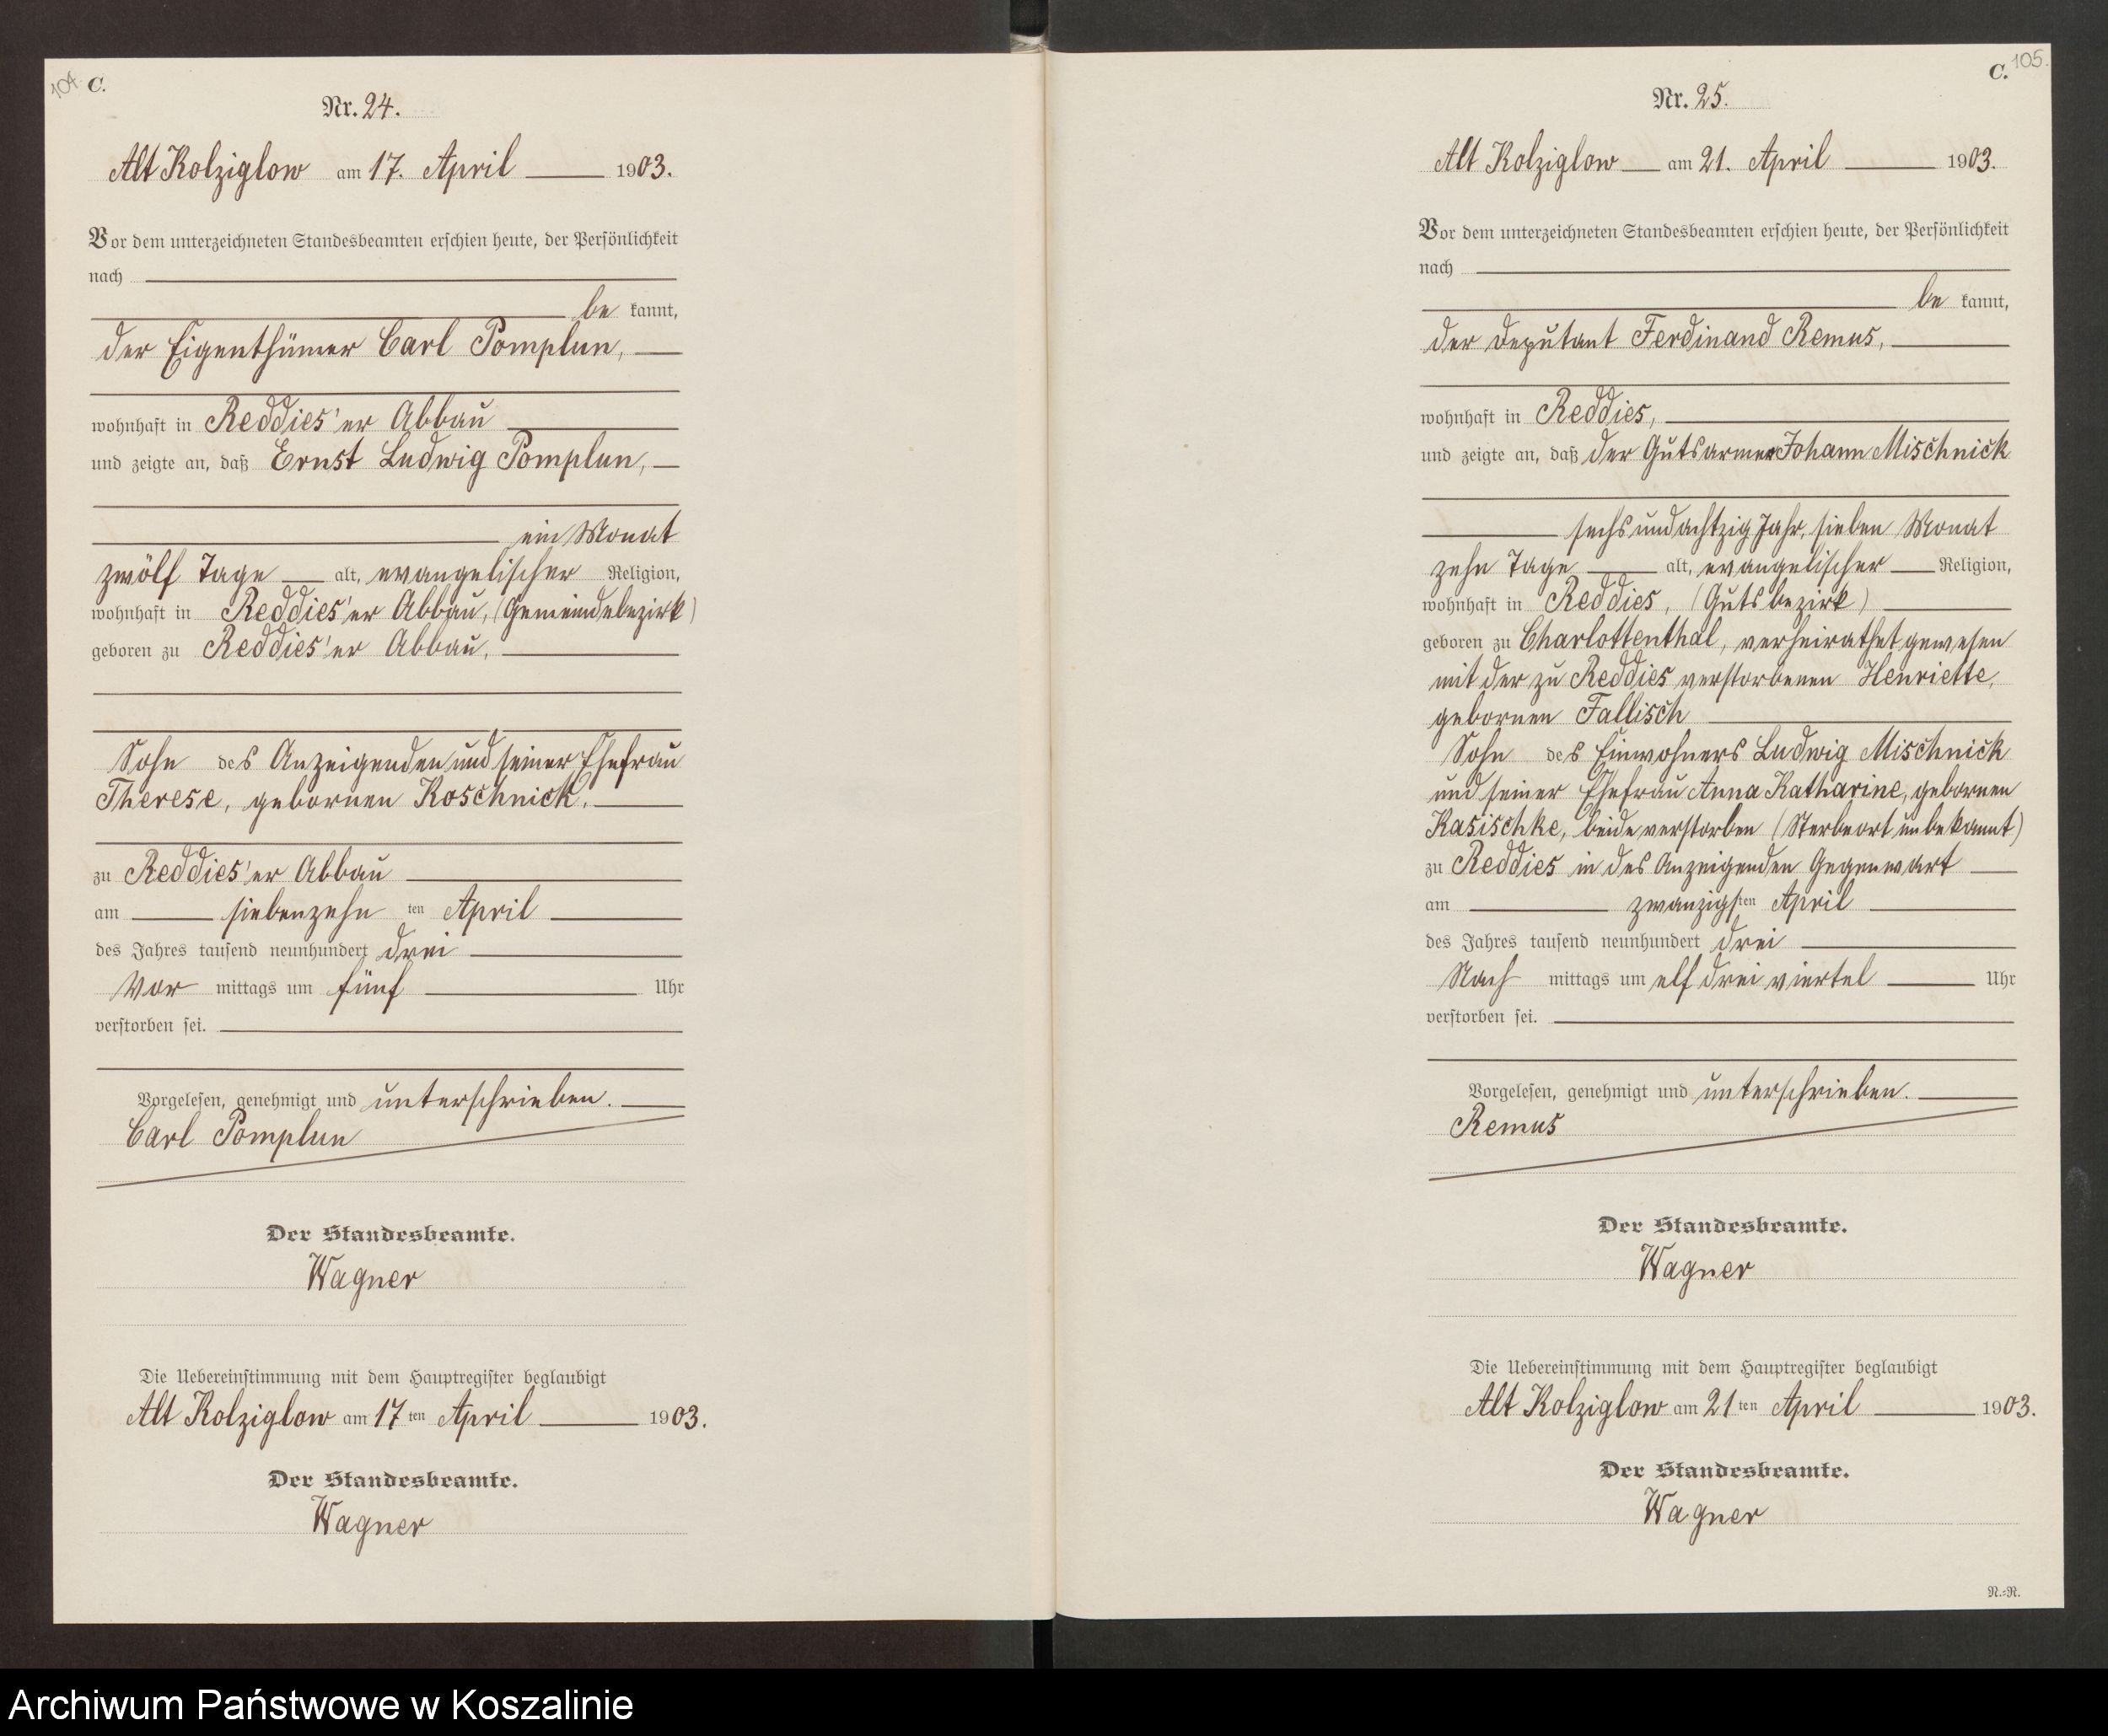 104. C.
Nr. 24.
Alt Kolziglow am 17. April 1903.
Vor dem unterzeichneten Standesbeamten erschien heute, der Persönlichkeit
nach
be kannt,
der Eigenthümer Carl Pomplun,
wohnhaft in Reddies'er Abbau
und zeigte an, daß Ernst Ludwig Pomplun,
ein Monat
zwölf Tage alt, evangelischer Religion,
wohnhaft in Reddies'er Abbau, (Gemeindebezirk)
geboren zu Reddies'er Abbau,
Sohn des Anzeigenden und seiner Ehefrau
Therese, gebornen Koschnick,
zu Reddies'er Abbau
am siebenzehn ten April
des Jahres tausend neunhundert drei
Vor mittags um fünf Uhr
verstorben sei.
Vorgelesen, genehmigt und unterschrieben.
Carl Pomplun
Der Standesbeamte.
Wagner
Die Uebereinstimmung mit dem Hauptregister beglaubigt
Alt Kolziglow am 17 ten April 1903.
Der Standesbeamte.
Wagner
C. 105.
Nr. 25.
Alt Kolziglow am 21. April 1903.
Vor dem unterzeichneten Standesbeamten erschien heute, der Persönlichkeit
nach
be kannt,
der Deputant Ferdinand Remus,
wohnhaft in Reddies,
und zeigte an, daß der Gutsarme Johann Mischnick
sechsundachtzig Jahr, sieben Monat
zehn Tage alt, evangelischer Religion,
wohnhaft in Reddies, (Gutsbezirk)
geboren zu Charlottenthal, verheirathet gewesen
mit der zu Reddies verstorbenen Henriette,
gebornen Fallisch
Sohn des Einwohners Ludwig Mischnick
und seiner Ehefrau Anna Katharine, gebornen
Kasischke, beide verstorben (Sterbeort unbekannt)
zu Reddies in des Anzeigenden Gegenwart
am zwanzigsten April
des Jahres tausend neunhundert drei
Nach mittags um elf drei viertel Uhr
verstorben sei.
Vorgelesen, genehmigt und unterschrieben.
Remus
Der Standesbeamte.
Wagner
Die Uebereinstimmung mit dem Hauptregister beglaubigt
Alt Kolziglow am 21 ten April 1903.
Der Standesbeamte.
Wagner
N.=N.
Archiwum Państwowe w Koszalinie